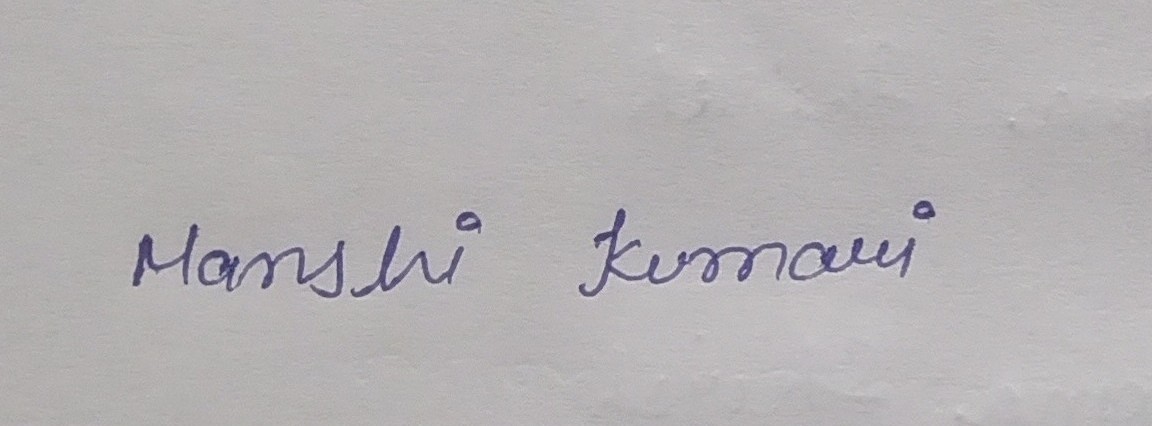 Manshi Kumari